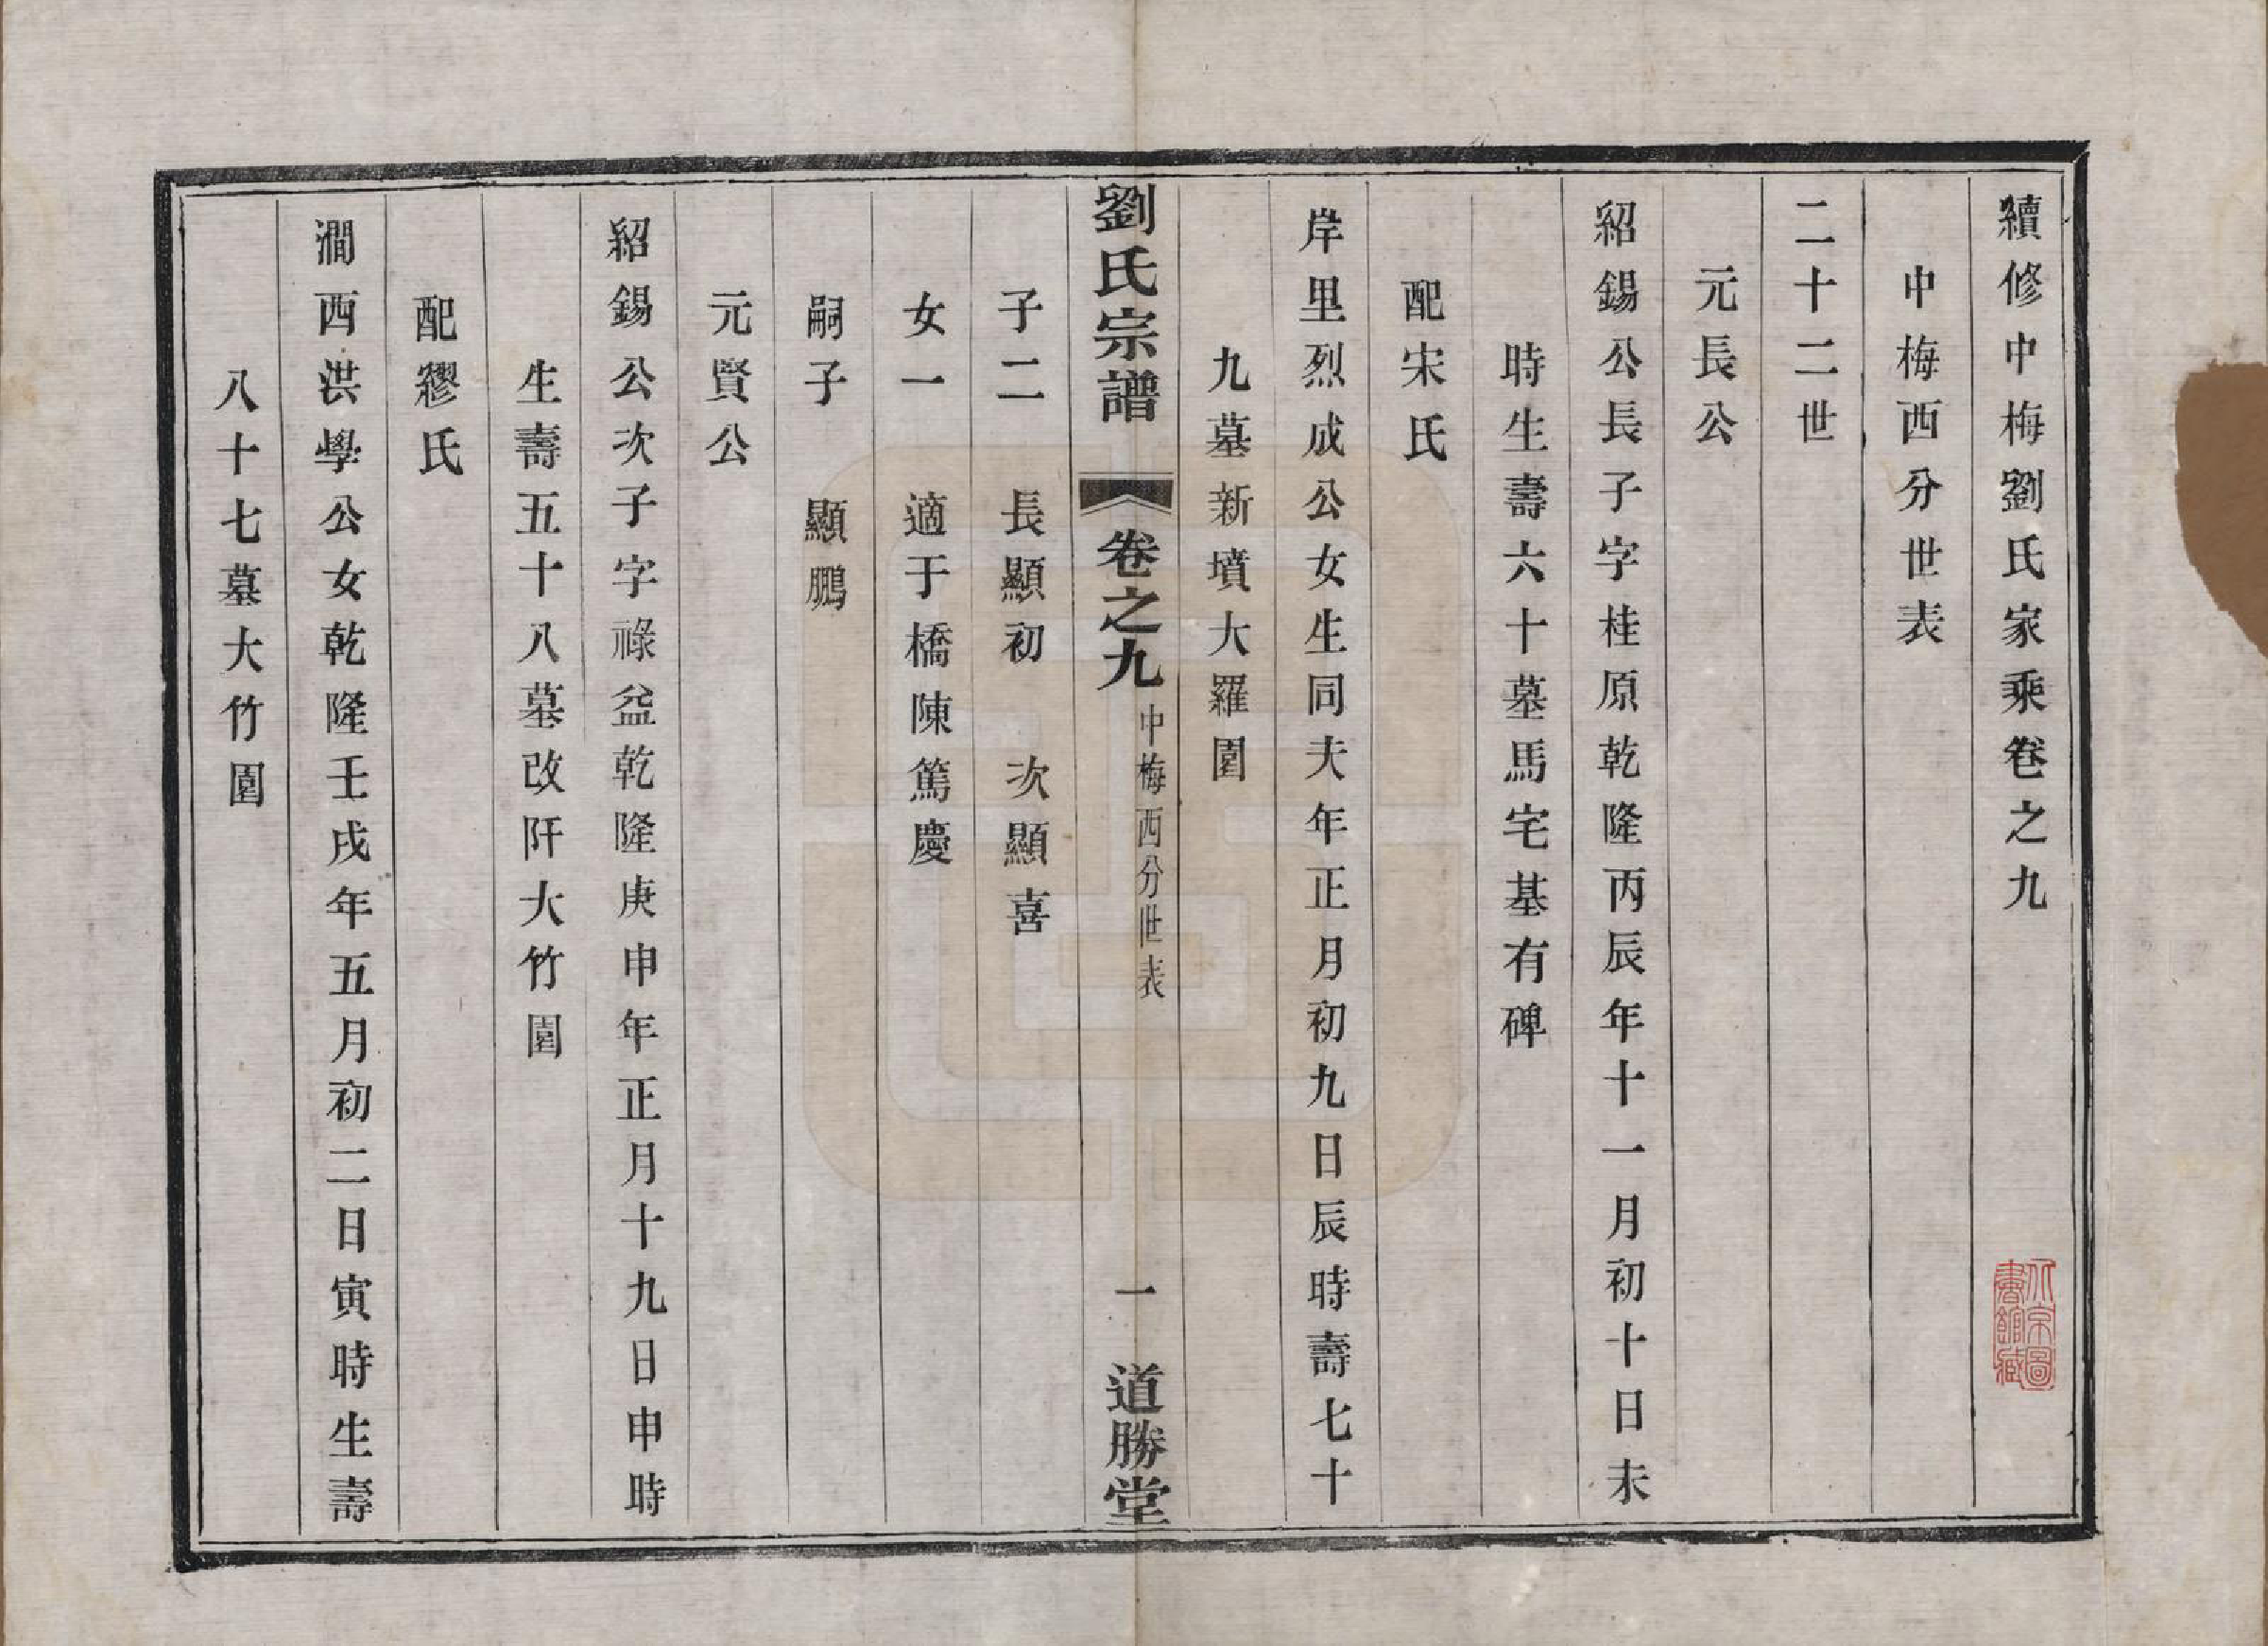 續修中梅劉氏家乘卷之九
中梅西分世表
二十二世
元長公
紹錫公長子字桂原乾隆丙辰年十一月初十日未
時生壽六十墓馬宅基有碑
配宋氏
岸里烈成公女生同夫年正月初九日辰時壽七十
九墓新墳大羅圍
劉氏宗譜 卷之九 中梅西分世表 一 道勝堂
子二 長顯初 次顯喜
女一 適于橋陳篤慶
嗣子 顯鵬
元賢公
紹錫公次子字祿益乾隆庚申年正月十九日申時
生壽五十八墓改阡大竹園
配繆氏
澗西洪學公女乾隆壬戌年五月初二日寅時生壽
八十七墓大竹園